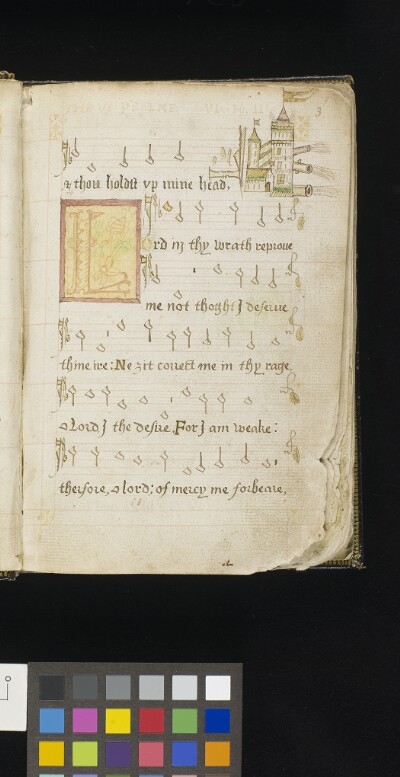 3
& thou holdst vp mine head,
Lord in thy wrath reproue
me not thoght I deserue
thine ire: Ne zit correct me in thy rage
o Lord I the desire. For I am weake:
therfore, o lord; of mercy me forbeare,